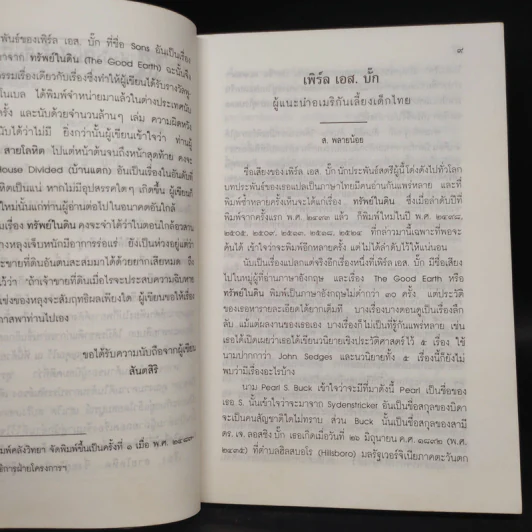 พันธ์ของเพิร์ล เอส. บั๊ก ที่ชื่อ Sons อันเป็นเรื่อง
จาก ทรัพย์ในดิน (The Good Earth) ฉะนั้นจึง
รรมเรื่องเดียวกับเรื่องซึ่งทำให้ผู้เขียนได้รับรางวัล
โนเบล ได้พิมพ์จำหน่ายมาแล้วในต่างประเทศนับ
ครั้ง และนับด้วยจำนวนล้านๆ เล่ม ความผิดหวัง
นับได้ว่าไม่มี ยิ่งกว่านั้นผู้เขียนเข้าใจว่า ท่านผู้
สายโลหิต ไปแต่หน้าต้นจนถึงหน้าสุดท้าย คงจะ
House Divided (บ้านแตก) อันเป็นเรื่องในอันดับที่
หิตเป็นแน่ หากไม่มีอุปสรรคใดๆ เกิดขึ้น ผู้เขียนก็
ใหม่นั้นแก่ท่านผู้อ่านต่อไปในอนาคตอันใกล้
รื่อง ทรัพย์ในดิน คงจะจำได้ว่าในตอนใกล้อวสาน
างหลุงเจ็บหนักมีอาการร่อแร่ ยังเป็นห่วงอยู่แต่ว่า
ะขายที่ดินอันตนสะสมมาได้ด้วยยากเสียหมด ถึง
ว่า "ถ้าเจ้าขายที่ดินเมื่อไรจะประสบความฉิบหาย
แช่งของหลุงจะสัมฤทธิผลเพียงใด ผู้เขียนขอให้เรื่อง
าสพาท่านไปเอง
ขอได้รับความนับถือจากผู้เขียน
สันตสิริ
มพ์คลังวิทยา จัดพิมพ์ขึ้นเป็นครั้งที่ ๑ เมื่อ พ.ศ.
ธิการฝ่ายโครงการฯ
๙
เพิร์ล เอส. บั๊ก
ผู้แนะนำอเมริกันเลี้ยงเด็กไทย
ส. พลายน้อย
ชื่อเสียงของ เพิร์ล เอส. บั๊ก นักประพันธ์สตรีผู้นี้โด่งดังไปทั่วโลก
บทประพันธ์ของเธอแปลเป็นภาษาไทยมีคนอ่านกันแพร่หลาย และที่
พิมพ์ซ้ำหลายครั้งเห็นจะได้แก่เรื่อง ทรัพย์ในดิน ซึ่งเมื่อลำดับปีที่
พิมพ์จากครั้งแรก พ.ศ. ๒๔๙๓ แล้ว ก็พิมพ์ใหม่ในปี พ.ศ. ๒๔๙๘,
๒๕๐๕, ๒๕๐๙, ๒๕๑๓, ๒๕๑๘, ๒๕๒๔ ที่กล่าวมานี้เฉพาะที่พอจะ
ค้นได้ เข้าใจว่าจะพิมพ์อีกหลายครั้ง แต่ไม่ได้ลำดับไว้ให้แน่นอน
นับเป็นเรื่องแปลกแต่จริงอีกเรื่องหนึ่งที่เพิร์ล เอส. บั๊ก มีชื่อเสียง
ไปในหมู่ผู้ที่อ่านภาษาอังกฤษ และเรื่อง The Good Earth หรือ
ทรัพย์ในดิน พิมพ์เป็นภาษาอังกฤษไม่ต่ำกว่า ๑๐ ครั้ง แต่ประวัติ
ของเธอหารายละเอียดได้ยากเต็มที บางเรื่องบางตอนดูเป็นเรื่องลึก
ลับ แม้แต่ผลงานของเธอเอง บางเรื่องก็ไม่เป็นที่รู้กันแพร่หลาย เช่น
เธอได้เปิดเผยว่าเธอได้เขียนนวนิยายเชิงประวัติศาสตร์ไว้ ๕ เรื่อง ใช้
นามปากกาว่า John Sedges และนวนิยายทั้ง ๕ เรื่องนี้ก็ยังไม่
พบว่ามีเรื่องอะไรบ้าง
นาม Pearl S. Buck เข้าใจว่าจะมีที่มาดังนี้ Pearl เป็นชื่อของ
เธอ S. นั้นเข้าใจว่าจะมาจาก Sydenstricker อันเป็นชื่อสกุลของบิดา
จะเป็นคนสัญชาติใดไม่ทราบ ส่วน Buck นั้นเป็นชื่อสกุลของสามี
ดร. เจ. ลอสซิง บั๊ก เธอเกิดเมื่อวันที่ ๒๖ มิถุนายน ค.ศ. ๑๘๙๒ (พ.ศ.
๒๔๓๕) ที่ตำบลฮิลสบอโร (Hillsboro) มลรัฐเวอร์จิเนียภาคตะวันตก